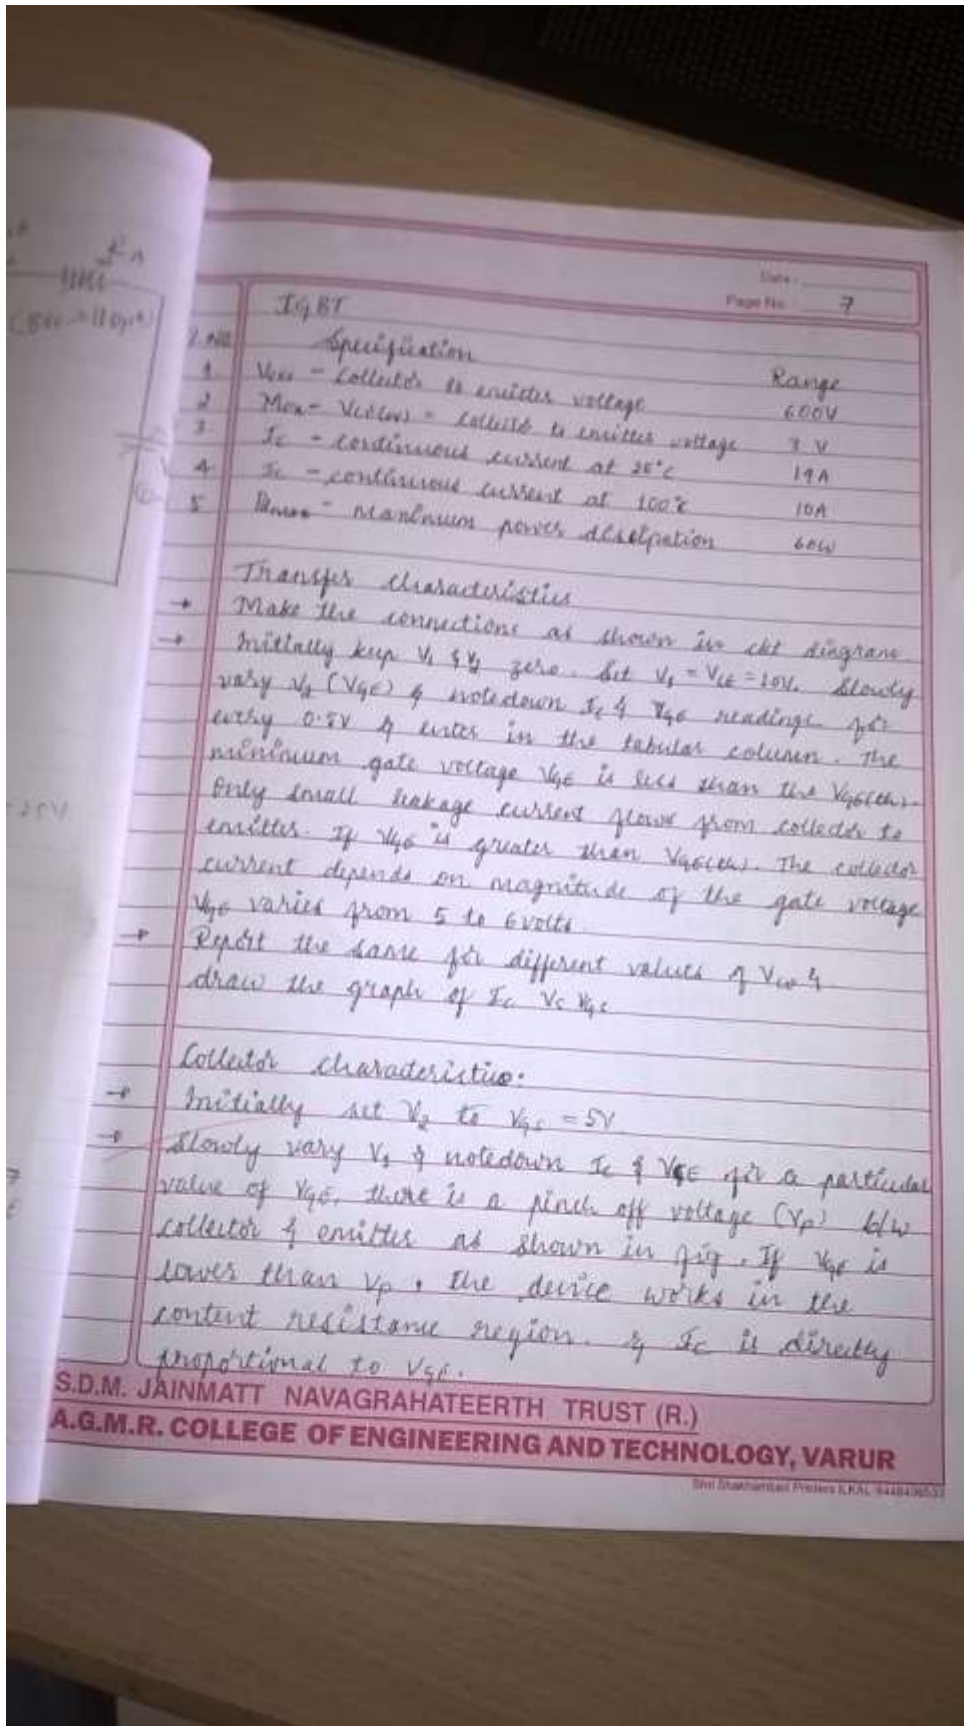 Date:
Page No. 7
IGBT
Specification
Range
1 VCES - Collector to emitter voltage 600V
2 Max - VCE(ON) - collector to emitter voltage 3 V
3 Ic - continuous current at 25°C 19A
4 Ic - continuous current at 100°C 10A
5 - maximum power dissipation 60W
Transfer characteristics
→ Make the connections as shown in ckt diagram.
→ Initially keep V1 & V2 zero. Set V1 = VCE = 10V. Slowly
vary V2 (VGE) & notedown Ic & VGE readings for
every 0.5V & enter in the tabular column. The
minimum gate voltage VGE is less than the VGE(th).
Only small leakage current flows from collector to
emitter. If VGE is greater than VGE(th). The collector
current depends on magnitude of the gate voltage
VGE varies from 5 to 6 volts.
→ Report the same for different values of &
draw the graph of Ic Vs VGE
Collector characteristics:
→ Initially set V2 to VGE = 5V
→ Slowly vary V1 & notedown Ic & VCE for a particular
value of VGE, there is a pinch off voltage (Vp) b/w
collector & emitter as shown in fig. If VGE is
lower than Vp, the device works in the
content resistance region. & Ic is directly
proportional to VGE.
S.D.M. JAINMATT NAVAGRAHATEERTH TRUST (R.)
A.G.M.R. COLLEGE OF ENGINEERING AND TECHNOLOGY, VARUR
Shri Shakhambari Printers ILKAL